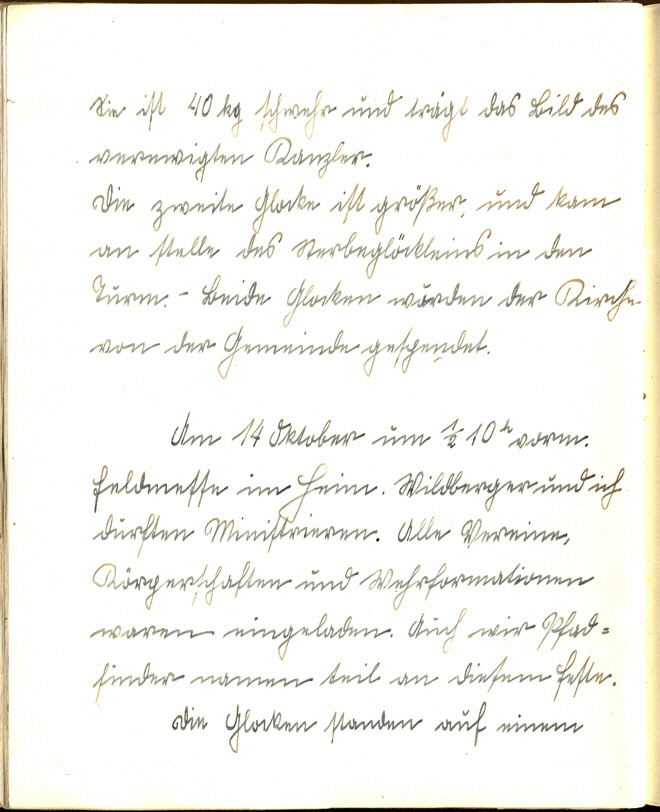 Sie ist 40 kg schwehr und trägt das Bild des
verewigten Kanzler.
Die zweite Glocke ist größer, und kam
an stelle des Sterbeglöckleins in den
Turm. – Beide Glocken wurden der Kirche
von der Gemeinde gespendet.
Am 14 Oktober um ½ 10h vorm.
Feldmesse im Heim. Wildberger und ich
durften Ministrieren. Alle Vereine,
Körperschaften und Wehrformationen
waren eingeladen. Auch wir Pfad=
finder namen teil an diesem Feste.
Die Glocken standen auf einem